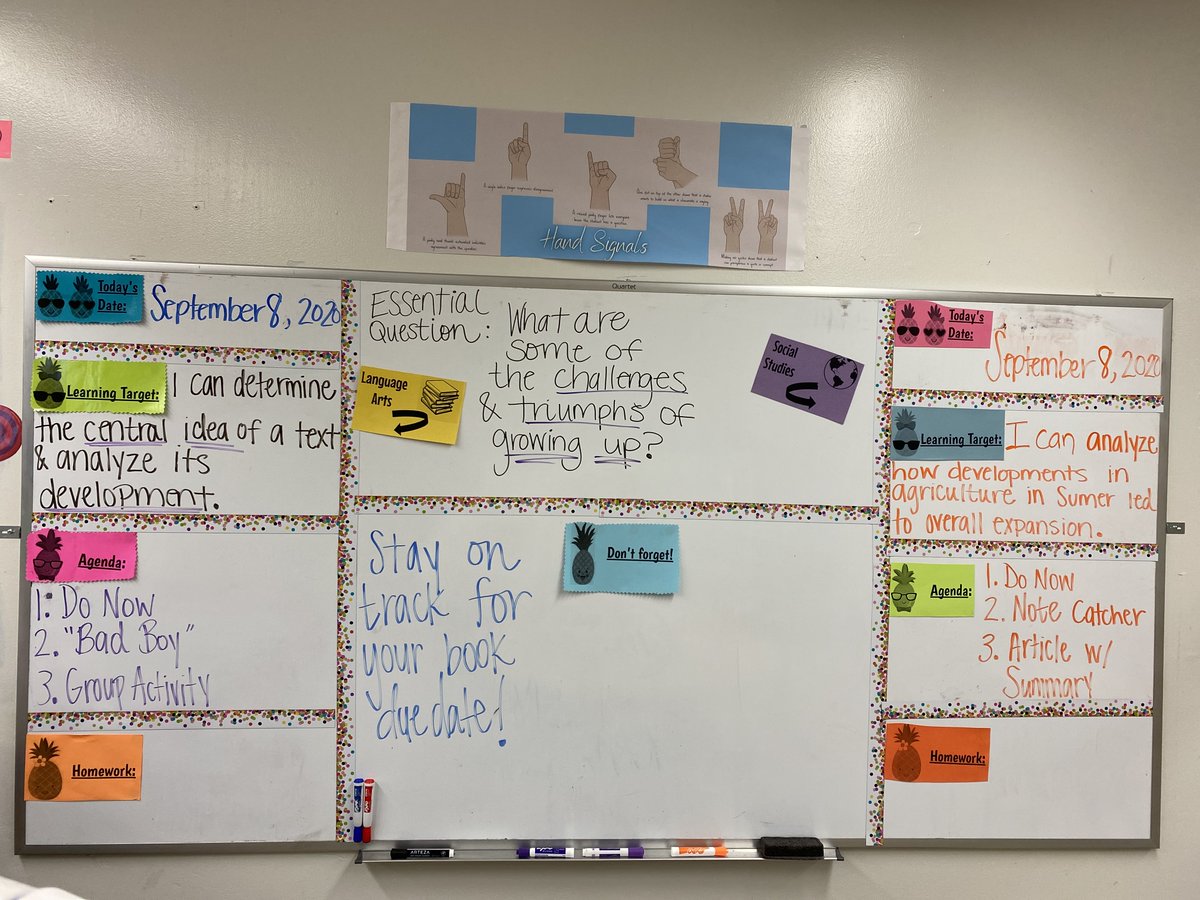 A single index finger expresses disagreement.
Hand Signals
Quartet
Today's
Date:
September 8, 2020
Learning Target:
I can determine
the central idea of a text
& analyze its
development.
Agenda:
1. Do Now
2. "Bad Boy"
3. Group Activity
Homework:
Essential
Question:
What are
some of
the challenges
& triumphs of
growing up?
Language
Arts
Social
Studies
Don't forget!
Stay on
track for
your book
due date!
Today's
Date:
September 8, 2020
Learning Target:
I can analyze
how developments in
agriculture in Sumer led
to overall expansion.
Agenda:
1. Do Now
2. Note Catcher
3. Article w/
Summary
Homework:
ARTEZA